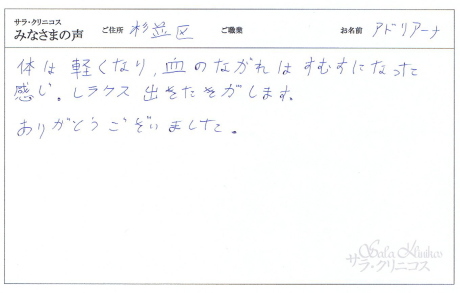 サラ・クリニコス
みなさまの声 ご住所 杉並区 ご職業 お名前 アドリアーナ
体は軽くなり,血のながれはすむすになった
感じ。レラクス出きたきがします。
ありがとうございました。
Sala Klinikos
サラ・クリニコス